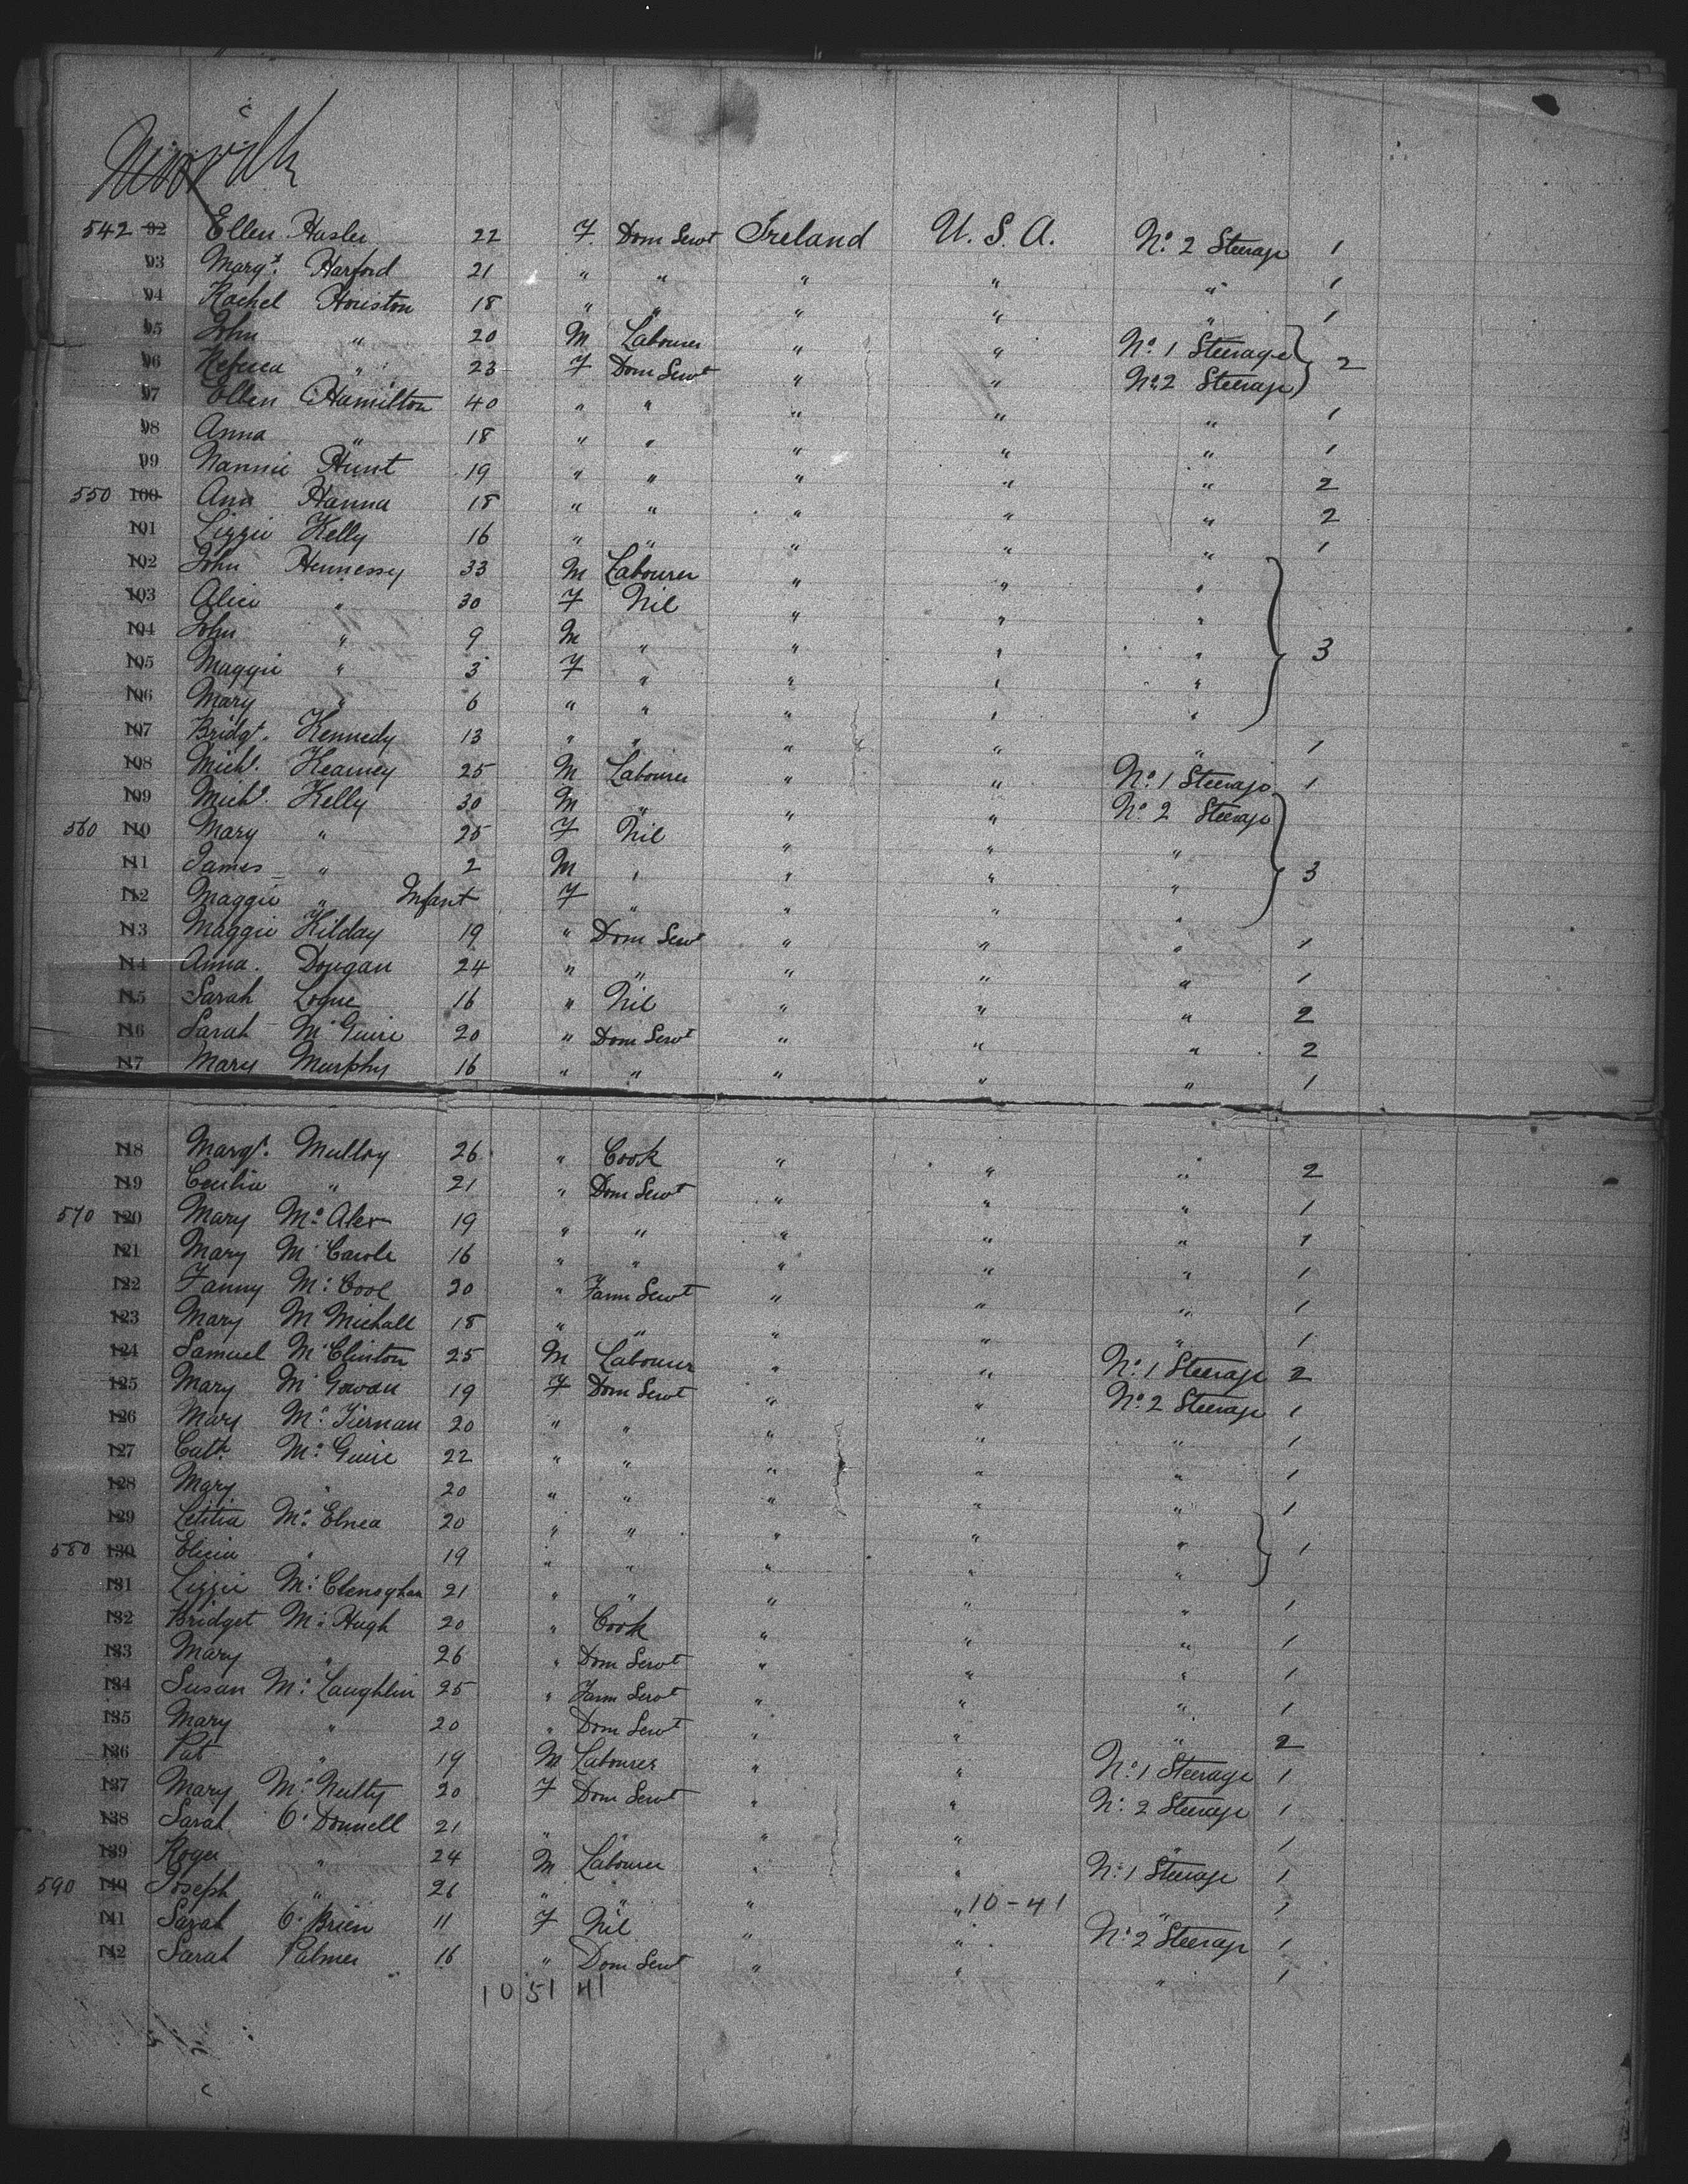 542 92 Ellen Hasler 22 F. Dom Servt Ireland U. S. A. No. 2 Steerage 1
93 Margt. Harford 21 " " " " " 1
94 Rachel Houston 18 " " " " " 1
95 John " 20 M Labourer " " No. 1 Steerage } 2
96 Rebecca " 23 F Dom Servt " " No. 2 Steerage
97 Ellen Hamilton 40 " " " " " 1
98 Anna " 18 " " " " " 1
99 Nannie Hunt 19 " " " " " 2
550 100 Ann Hanna 18 " " " " " 2
101 Lizzie Kelly 16 " " " " " 1
102 John Hennessy 33 M Labourer " " "
103 Alice " 30 F Nil " " "
104 John " 9 M " " " " } 3
105 Maggie " 3 F " " " "
106 Mary " 6 " " " " "
107 Bridgt. Kennedy 13 " " " " " 1
108 Michl. Kearney 25 M Labourer " " No. 1 Steerage 1
109 Michl. Kelly 30 M " " " No. 2 Steerage
560 110 Mary " 25 F Nil " " "
111 James " 2 M " " " " } 3
112 Maggie " Infant F " " " "
113 Maggie Kilday 19 " Dom Servt " " " 1
114 Anna. Dougan 24 " " " " " 1
115 Sarah Logue 16 " Nil " " " 2
116 Sarah McGuire 20 " Dom Servt " " " 2
117 Mary Murphy 16 " " " " " 1
118 Margt. Mulloy 26 " Cook " " " 2
119 Cecilia " 21 " Dom Servt " " " 1
570 120 Mary McAler 19 " " " " " 1
121 Mary McCarole 16 " " " " " 1
122 Fanny McCool 20 " Farm Servt " " " 1
123 Mary McMichall 18 " " " " " 1
124 Samuel McClinton 25 M Labourer " " No. 1 Steerage 2
125 Mary McGowan 19 F Dom Servt " " No. 2 Steerage 1
126 Mary McTiernan 20 " " " " " 1
127 Cath. McGuire 22 " " " " " 1
128 Mary " 20 " " " " " 1
129 Letitia McElnea 20 " " " " "
580 130 Elicia " 19 " " " " " } 1
131 Lizzie McClenoghan 21 " " " " " 1
132 Bridget McHugh 20 " Cook " " " 1
133 Mary " 26 " Dom Servt " " " 1
134 Susan McLaughlin 25 " Farm Servt " " " 1
135 Mary " 20 " Dom Servt " " " 2
136 Pat " 19 M Labourer " " No. 1 Steerage 1
137 Mary McNulty 20 F Dom Servt " " No. 2 Steerage 1
138 Sarah O'Donnell 21 " " " " " 1
139 Roger " 24 M Labourer " " No. 1 Steerage 1
590 140 Joseph " 26 " " " " 10-41 " 1
141 Sarah O'Brien 11 F Nil " " No. 2 Steerage 1
142 Sarah Palmer 16 " Dom Servt " " " 1
10 51 41